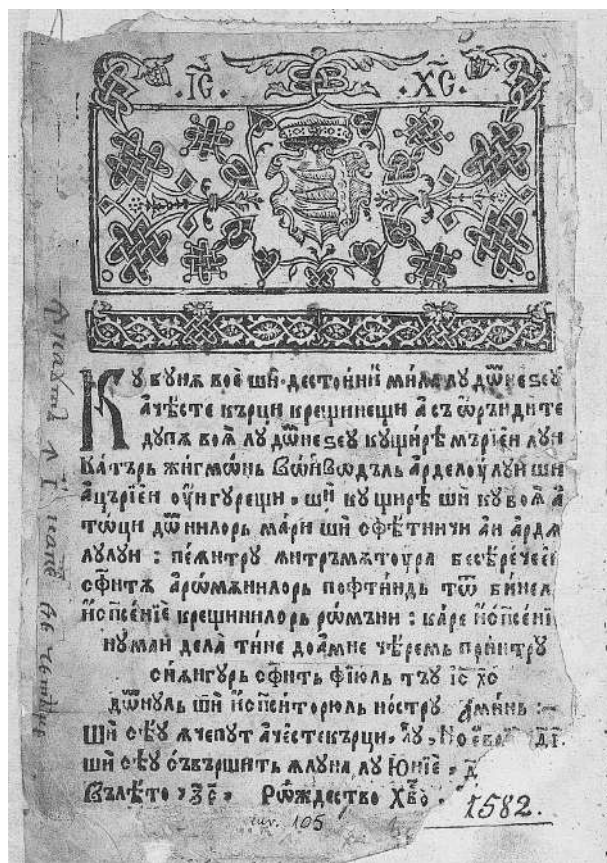 І҃С ХС҃
Кꙋ бꙋнѫ воѐ шѝ достоиниѝ мила лꙋ дѡ҃неѕеꙋ
ачѣсте кърци крещинещи а съ ѡ҆ръндите
дꙋпа воѧ̀ лꙋ дѡ҃неѕеꙋ кꙋ щирѣ мърїеи лꙋи
Батърь жигмѡнь воивѡдъль арделꙋлꙋи ши
а църїеи ѹнгꙋрещи, шѝ кꙋ щирѣ шѝ кꙋ воѧ̀ а
тѡци дѡ҃нилорь мари шѝ сфѣтничи аи ардѧ
лꙋлꙋи : пеѫнтрꙋ
сфнтѫ арꙋмѫнилорь пофтиндь тѡ҃ бинел
и҆сп҃сенїе крещинилорь рꙋмъни : каре
нꙋмаи дела тине доамне черемь принтрꙋ
сиѫнгꙋрь сфнть фїюль тъꙋ іс҃ хс҃
дѡ҃нꙋль шѝ и҆сп҃иторюль нострꙋ Аминь :~
Шѝ сѣꙋ ѫчепꙋт ачѣсте кърци, лꙋ, д҃і.
шѝ сѣꙋ съвършить ѫ лꙋна лꙋ Юнїе,
Вълѣто ҂з҃ч҃, Рѡждество Хв҃о,
1582.
inv. 105